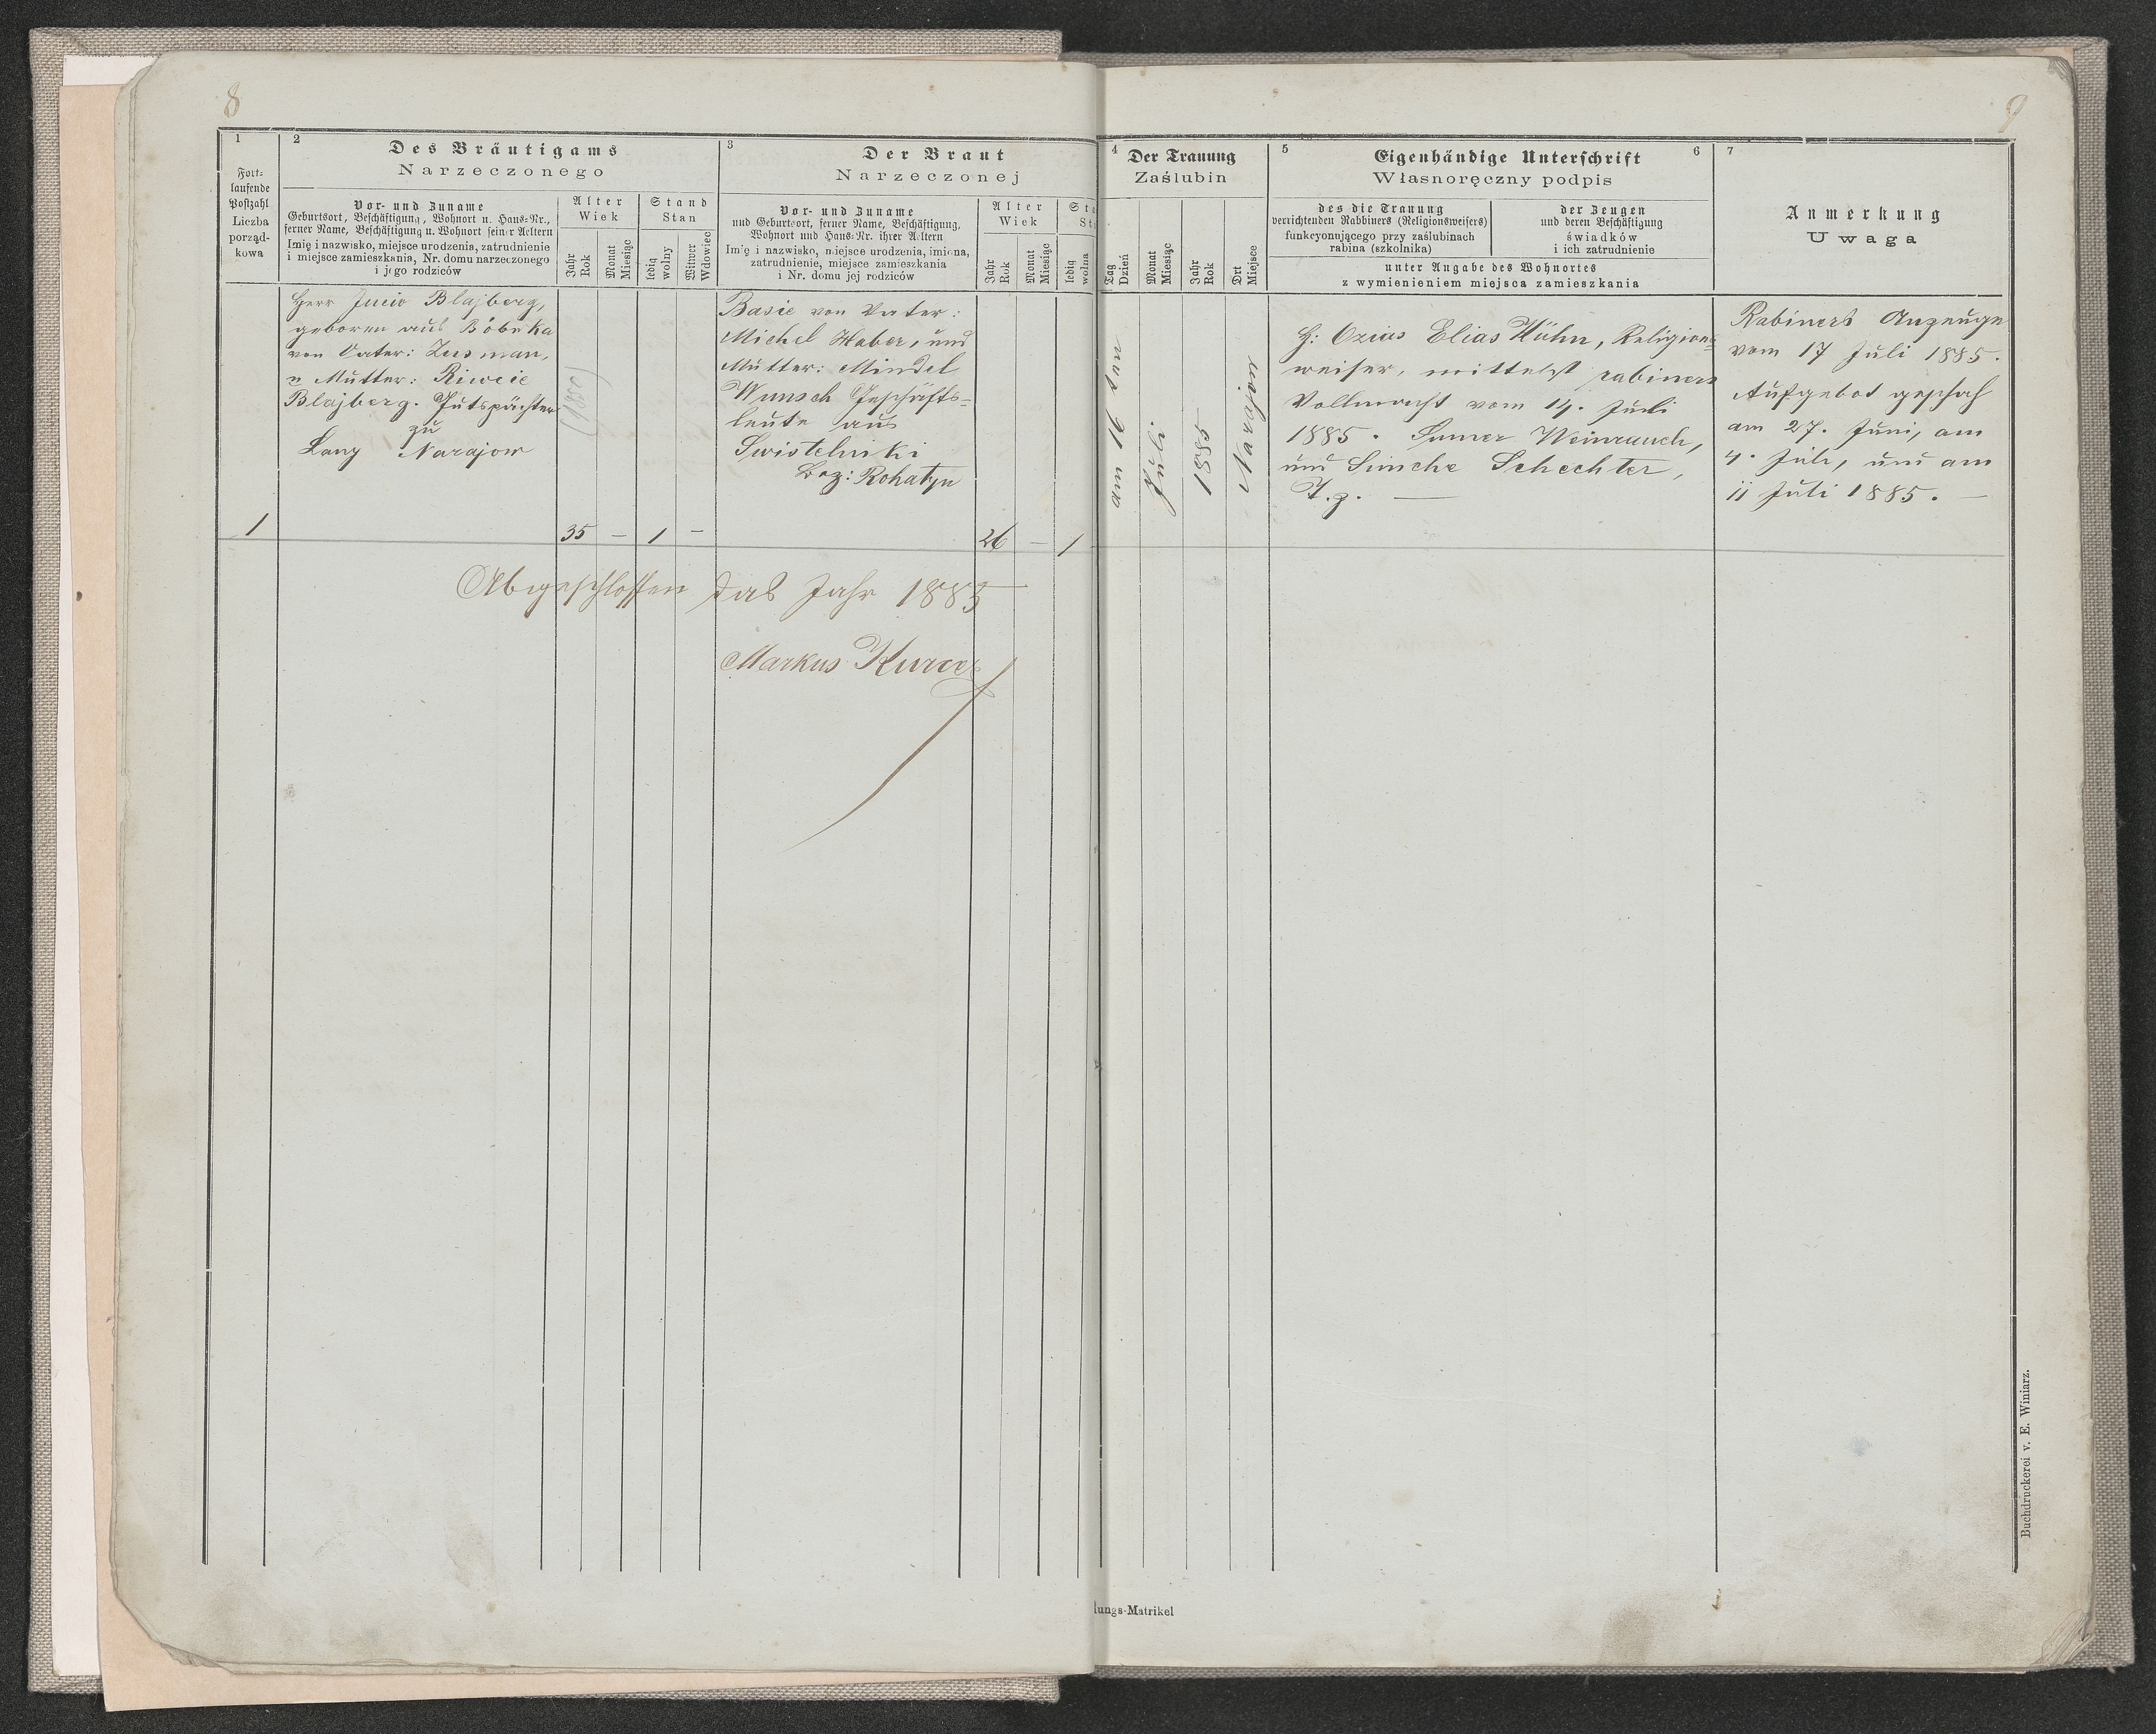 8
9
1
Fort-
laufende
Postzahl
Liczba
porząd-
kowa
2
Des Bräutigams
Narzeczonego
Vor- und Zuname
Geburtsort, Beschäftigung, Wohnort u. Haus-Nr.,
ferner Name, Beschäftigung u. Wohnort seiner Aeltern
Imię i nazwisko, miejsce urodzenia, zatrudnienie
i miejsce zamieszkania, Nr. domu narzeczonego
i jego rodziców
Alter
Wiek
Jahr
Rok
Monat
Miesiąc
Stand
Stan
ledig
wolny
Witwer
Wdowiec
3
Der Braut
Narzeczonej
Vor- und Zuname
und Geburtsort, ferner Name, Beschäftigung,
Wohnort und Haus-Nr. ihrer Aeltern
Imię i nazwisko, miejsce urodzenia, imiona,
zatrudnienie, miejsce zamieszkania
i Nr. domu jej rodziców
Alter
Wiek
Jahr
Rok
Monat
Miesiąc
Sta
St
ledig
wolna
4
Der Trauung
Zaślubin
Tag
Dzień
Monat
Miesiąc
Jahr
Rok
Ort
Miejsce
5
Eigenhändige Unterschrift
6
Własnoręczny podpis
des die Trauung
verrichtenden Rabbiners (Religionsweisers)
funkcyonującego przy zaślubinach
rabina (szkolnika)
der Zeugen
und deren Beschäftigung
świadków
i ich zatrudnienie
unter Angabe des Wohnortes
z wymienieniem miejsca zamieszkania
7
Anmerkung
Uwaga
Herr Blajberg,
geboren aus Bóbrka
von Vater: Zusman,
u Mutter: Riwcie
Blajberg. Gutspächter
zu
Lany Narajow
1
35 — 1 —
Basie von Vater:
Michel Haber, und
Mutter: Mindel
Wunsch Geschäfts-
leute aus
Swistelniki
Bez: Rohatyn
26 — 1
am 16 ten
Juli
1885
Narajow
H: Ozias Elias Hühn, Religions-
weiser, mittelst rabiners
Vollmacht vom 14. Juli
1885. Sumer Weinrauch,
und Simche Schechter,
Rabiners Anzeuge
vom 17 Juli 1885.
Aufgebot geschah
am 27. Juni, am
4. Juli, und am
11 Juli 1885. —
Abgeschlossen das Jahr 1885
Markus Kurzer
lungs-Matrikel
Buchdruckerei v. E. Winiarz.